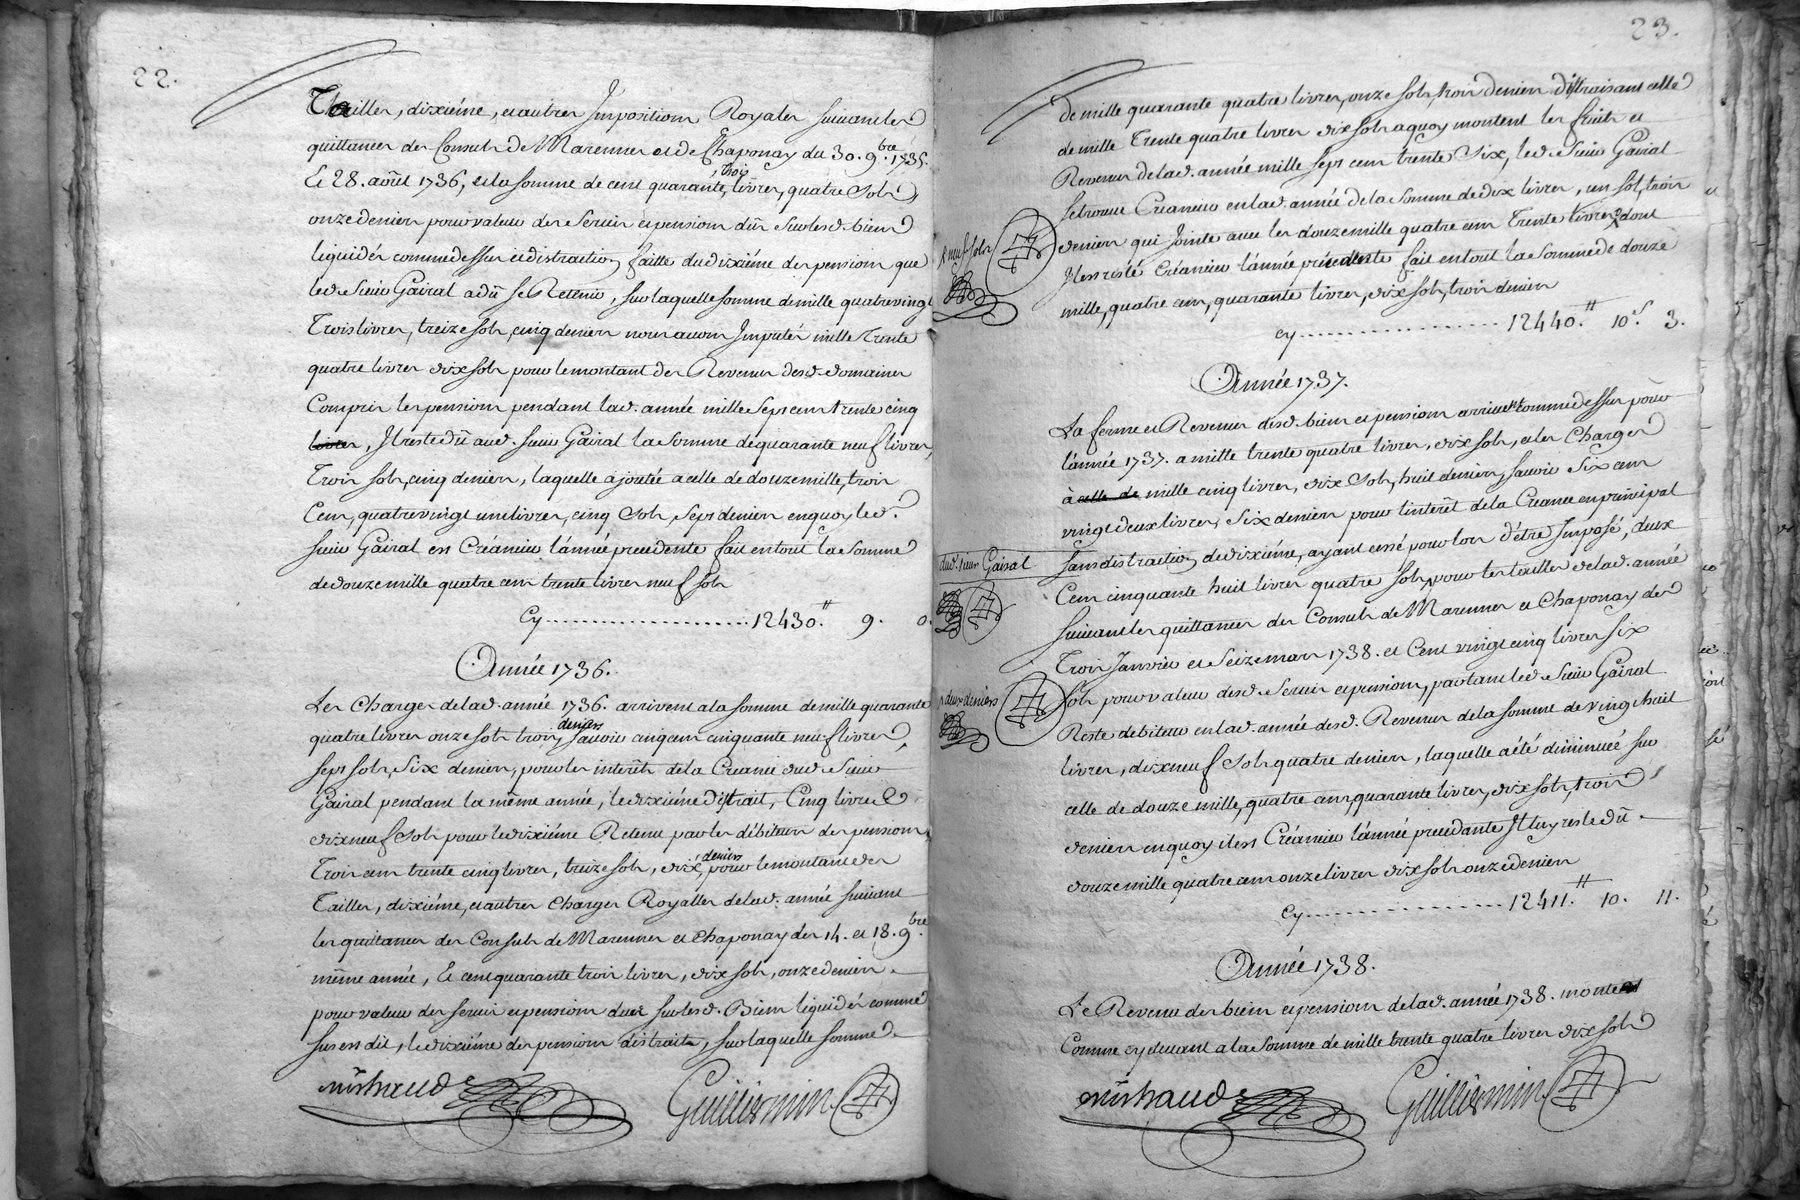 22.
Tailles, dixiéme, et autres Impositions Royales suivant les
quittances des Consuls de Marennes et de Chaponay du 30. 9.bre 1735.
Et 28. août 1736, et la somme de cent quarante trois livres, quatre Sols,
onze deniers pour valeur des Servis et pensions dûs Sur lesd. biens
liquidés comme dessus et distraction faitte du dixiéme des pensions que
led. Sieur Gairal a dû se Retenir, sur laquelle somme de mille quatre vingt
Trois livres, treize sols, cinq deniers nous avons Imputés mille Trente
quatre livres dix sols pour le montant des Revenus desd. domaines
Compris les pensions pendant lad. année mille Sept cent trente cinq
livres, Il reste dû aud. sieur Gairal la Somme de quarante neuf livres,
Trois sols, cinq deniers, laquelle ajoutée a celle de douze mille, trois
Cent, quatre vingt une livres, cinq Sols, Sept deniers en quoy led.
sieur Gairal est Créancier l'année precedente fait en tout la Somme
de douze mille quatre cent trente livres neuf sols
Cy.....................12430.# 9. 0.
Année 1736.
Les Charges de lad. année 1736. arrivent a la somme de mille quarante
quatre livres onze sols trois deniers, sauoir cinq cent cinquante neuf livres,
sept sols, Six deniers, pour les interêts de la Creance dud. Sieur
Gairal pendant la même année, le dixiéme distrait, Cinq livres
dix neuf Sols pour le dixiéme Retenu par les débiteurs des pensions,
Trois cent trente cinq livres, treize sols, dix deniers, pour le montant des
Tailles, dixiéme, et autres Charges Royalles de lad. année suivant
les quittances des Consuls de Marennes et Chaponay des 14. et 18. 9.bre
même année, Et cent quarante trois livres, dix sols, onze deniers
pour valeur des servis et pensions dues sur lesd. Biens liquidés comme
sus est dit, le dixiéme des pensions distrait, sur laquelle somme
michaud
Guillermin
23.
de mille quarante quatre livres, onze sols, trois deniers distraisant celle
de mille Trente quatre livres dix sols a quoy montent les fruits et
Revenus de lad. année mille sept cent trente Six, led. Sieur Gairal
se trouve Créancier en lad. année de la Somme de dix livres, un sol, trois
deniers qui Jointe avec les douze mille quatre cent Trente livres dont
& neuf Sols
Il est résté Créancier l'année précédente fait en tout la Somme de douze
mille, quatre cent, quarante livres, dix sols, trois deniers
cy...................12440.# 10.s 3.
Année 1737.
La ferme et Revenus desd. biens et pensions arrivent comme dessus pour
l'année 1737. a mille trente quatre livres, dix sols, et les Charges
à celle de mille cinq livres, dix Sols, huit deniers, sauoir Six cent
vingt deux livres, Six deniers pour l'intérêt de la Creance en principal
dud. sieur Gairal
sans distraction de dixiéme, ayant cessé pour lors d'être Imposé, deux
Cent cinquante huit livres quatre sols, pour les tailles de lad. année
suivant les quittances des Consuls de Marennes et Chaponay des
Trois Janvier et Seize mars 1738. et Cent vingt cinq livres Six
Sols pour valeur desd. Servis et pensions, partant led. Sieur Gairal
& deux deniers
Reste debiteur en lad. année desd. Revenus de la somme de vingt huit
livres, dix neuf Sols quatre deniers, laquelle a été diminuée sur
celle de douze mille, quatre cent, quarante livres, dix sols, trois
deniers en quoy il est Créancier l'année precedante Il luy reste dû
douze mille quatre cent onze livres dix sols onze deniers
Cy..................12411.# 10. 11.
Année 1738.
Le Revenu des biens et pensions de lad. année 1738. montent
Comme cy devant a la Somme de mille trente quatre livres dix sols
michaud
Guillermin